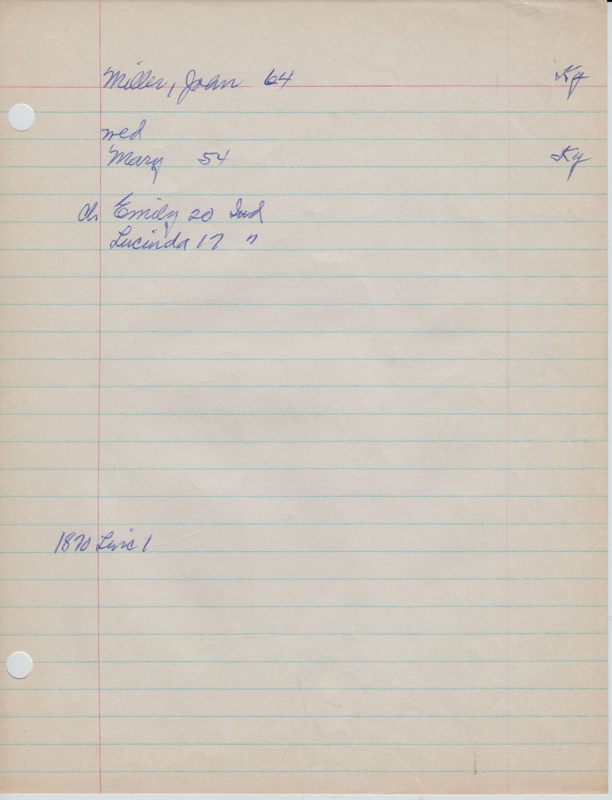 Miller, Joan 64 Ky
wed
Mary 54 Ky
Ch Emily 20 Ind
Lucinda 17 "
1870 1